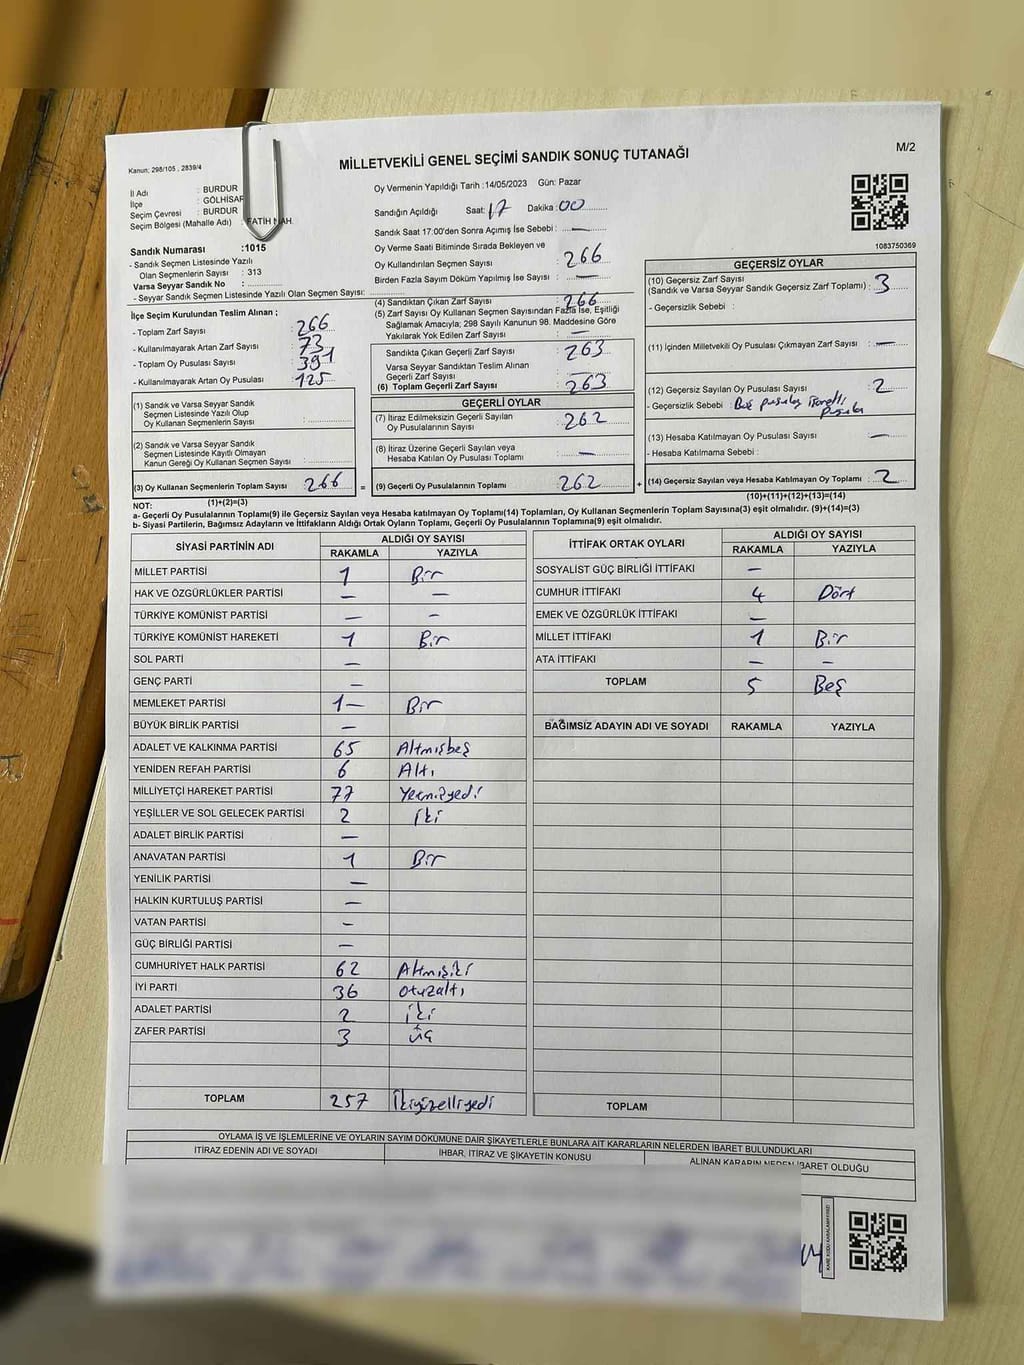 M/2
Kanun: 298/105 , 2839/4
MİLLETVEKİLİ GENEL SEÇİMİ SANDIK SONUÇ TUTANAĞI
İl Adı : BURDUR
İlçe : GÖLHİSAR
Seçim Çevresi : BURDUR
Seçim Bölgesi (Mahalle Adı) : FATİH MAH.
Sandık Numarası :1015
- Sandık Seçmen Listesinde Yazılı
Olan Seçmenlerin Sayısı : 313
Varsa Seyyar Sandık No :
- Seyyar Sandık Seçmen Listesinde Yazılı Olan Seçmen Sayısı:
İlçe Seçim Kurulundan Teslim Alınan ;
- Toplam Zarf Sayısı : 266
- Kullanılmayarak Artan Zarf Sayısı : 73
- Toplam Oy Pusulası Sayısı : 391
- Kullanılmayarak Artan Oy Pusulası : 125
(1) Sandık ve Varsa Seyyar Sandık
Seçmen Listesinde Yazılı Olup
Oy Kullanan Seçmenlerin Sayısı :
(2) Sandık ve Varsa Seyyar Sandık
Seçmen Listesinde Kayıtlı Olmayan
Kanun Gereği Oy Kullanan Seçmen Sayısı :
(3) Oy Kullanan Seçmenlerin Toplam Sayısı : 266
(1)+(2)=(3)
Oy Vermenin Yapıldığı Tarih :14/05/2023 Gün: Pazar
Sandığın Açıldığı Saat: 17 Dakika : 00
Sandık Saat 17:00'den Sonra Açımış İse Sebebi : —
Oy Verme Saati Bitiminde Sırada Bekleyen ve
Oy Kullandırılan Seçmen Sayısı : 266
Birden Fazla Sayım Döküm Yapılmış İse Sayısı : —
(4) Sandıktan Çıkan Zarf Sayısı : 266
(5) Zarf Sayısı Oy Kullanan Seçmen Sayısından Fazla İse, Eşitliği
Sağlamak Amacıyla; 298 Sayılı Kanunun 98. Maddesine Göre
Yakılarak Yok Edilen Zarf Sayısı : —
Sandıkta Çıkan Geçerli Zarf Sayısı : 263
Varsa Seyyar Sandıktan Teslim Alınan
Geçerli Zarf Sayısı :
(6) Toplam Geçerli Zarf Sayısı : 263
GEÇERLİ OYLAR
(7) İtiraz Edilmeksizin Geçerli Sayılan
Oy Pusulalarının Sayısı : 262
(8) İtiraz Üzerine Geçerli Sayılan veya
Hesaba Katılan Oy Pusulası Toplamı : —
= (9) Geçerli Oy Pusulalarının Toplamı : 262 +
1083750369
GEÇERSİZ OYLAR
(10) Geçersiz Zarf Sayısı
(Sandık ve Varsa Seyyar Sandık Geçersiz Zarf Toplamı) : 3
- Geçersizlik Sebebi :
(11) İçinden Milletvekili Oy Pusulası Çıkmayan Zarf Sayısı : —
(12) Geçersiz Sayılan Oy Pusulası Sayısı : 2
- Geçersizlik Sebebi : Boş pusula, işaretli
Pusula
(13) Hesaba Katılmayan Oy Pusulası Sayısı : —
- Hesaba Katılmama Sebebi :
(14) Geçersiz Sayılan veya Hesaba Katılmayan Oy Toplamı : 2
(10)+(11)+(12)+(13)=(14)
NOT:
a- Geçerli Oy Pusulalarının Toplamı(9) ile Geçersiz Sayılan veya Hesaba katılmayan Oy Toplamı(14) Toplamları, Oy Kullanan Seçmenlerin Toplam Sayısına(3) eşit olmalıdır. (9)+(14)=(3)
b- Siyasi Partilerin, Bağımsız Adayların ve İttifakların Aldığı Ortak Oyların Toplamı, Geçerli Oy Pusulalarının Toplamına(9) eşit olmalıdır.
SİYASİ PARTİNİN ADI ALDIĞI OY SAYISI
RAKAMLA YAZIYLA
MİLLET PARTİSİ 1 Bir
HAK VE ÖZGÜRLÜKLER PARTİSİ — —
TÜRKİYE KOMÜNİST PARTİSİ — —
TÜRKİYE KOMÜNİST HAREKETİ 1 Bir
SOL PARTİ —
GENÇ PARTİ —
MEMLEKET PARTİSİ 1— Bir
BÜYÜK BİRLİK PARTİSİ —
ADALET VE KALKINMA PARTİSİ 65 Altmışbeş
YENİDEN REFAH PARTİSİ 6 Altı
MİLLİYETÇİ HAREKET PARTİSİ 77 Yetmişyedi
YEŞİLLER VE SOL GELECEK PARTİSİ 2 İki
ADALET BİRLİK PARTİSİ —
ANAVATAN PARTİSİ 1 Bir
YENİLİK PARTİSİ —
HALKIN KURTULUŞ PARTİSİ —
VATAN PARTİSİ -
GÜÇ BİRLİĞİ PARTİSİ —
CUMHURİYET HALK PARTİSİ 62 Altmışiki
İYİ PARTİ 36 Otuzaltı
ADALET PARTİSİ 2 İki
ZAFER PARTİSİ 3 üç
TOPLAM 257 İkiyüzelliyedi
İTTİFAK ORTAK OYLARI ALDIĞI OY SAYISI
RAKAMLA YAZIYLA
SOSYALİST GÜÇ BİRLİĞİ İTTİFAKI —
CUMHUR İTTİFAKI 4 Dört
EMEK VE ÖZGÜRLÜK İTTİFAKI —
MİLLET İTTİFAKI 1 Bir
ATA İTTİFAKI — —
TOPLAM 5 Beş
BAĞIMSIZ ADAYIN ADI VE SOYADI RAKAMLA YAZIYLA
TOPLAM
OYLAMA İŞ VE İŞLEMLERİNE VE OYLARIN SAYIM DÖKÜMÜNE DAİR ŞİKAYETLERLE BUNLARA AİT KARARLARIN NELERDEN İBARET BULUNDUKLARI
İTİRAZ EDENİN ADI VE SOYADI İHBAR, İTİRAZ VE ŞİKAYETİN KONUSU ALINAN KARARIN NEDEN İBARET OLDUĞU